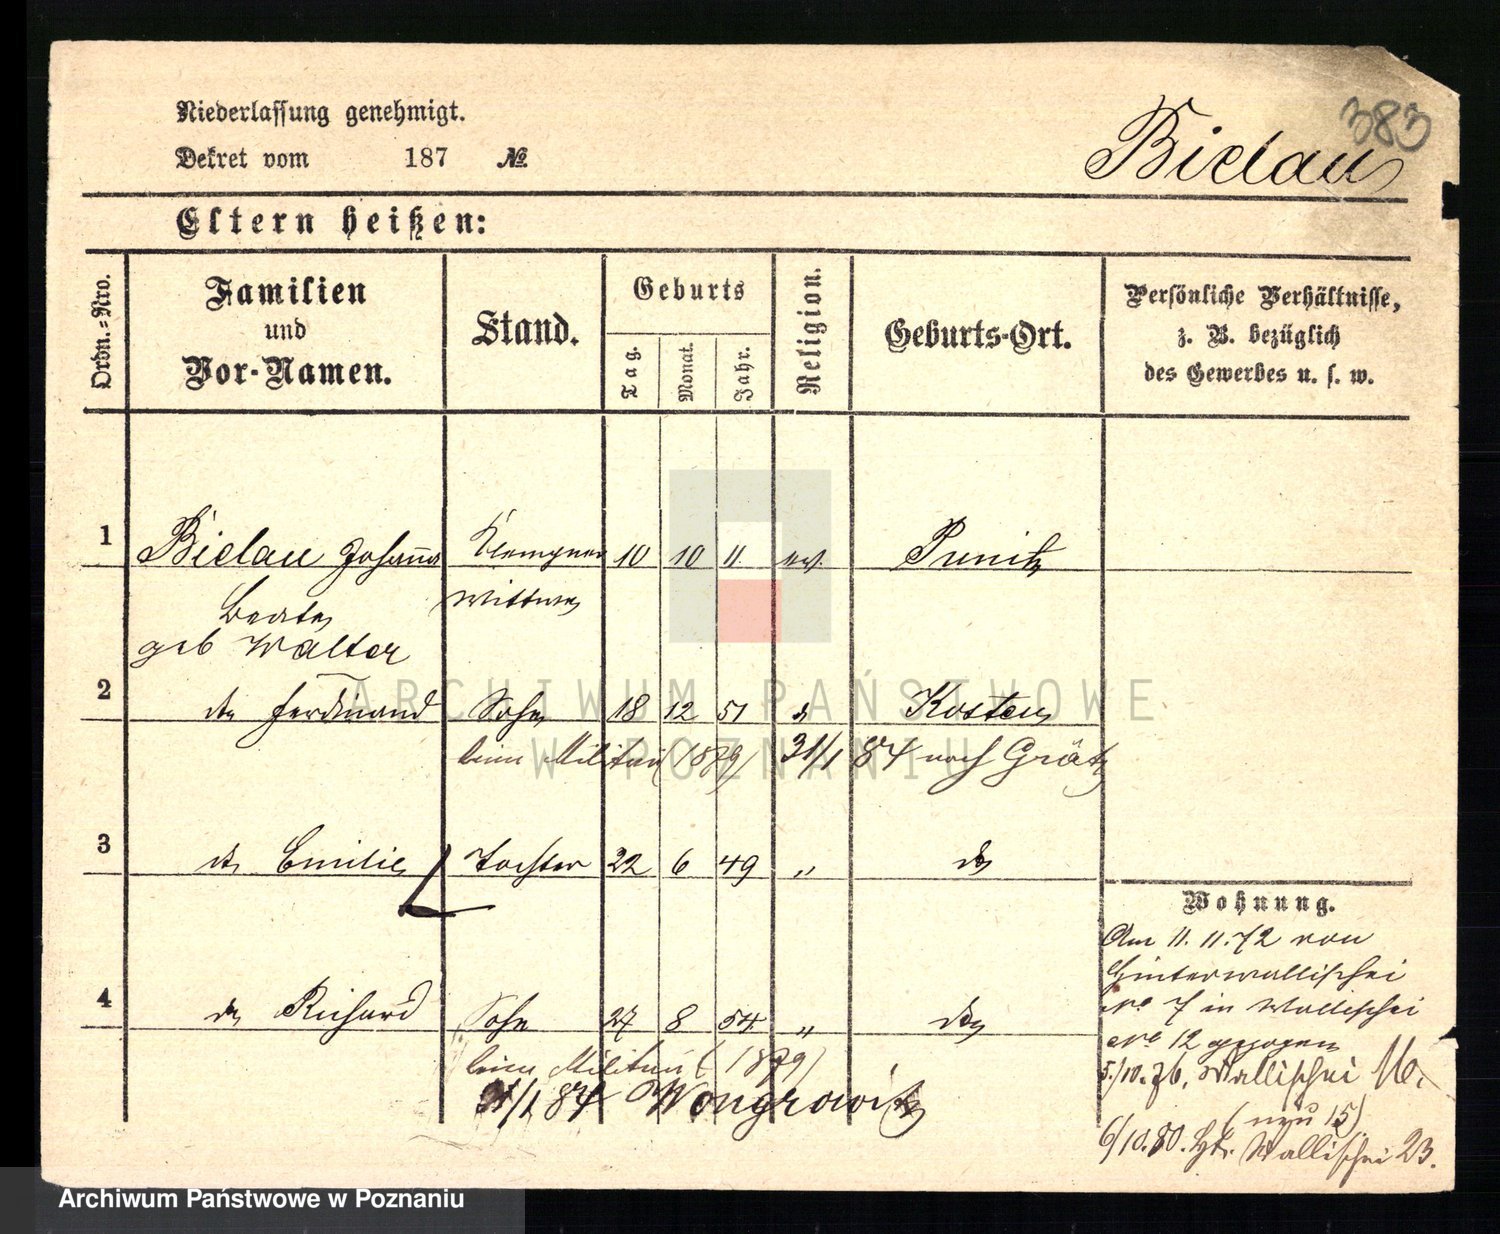 383
Niederlassung genehmigt.
Dekret vom 187 №
Bielau
Eltern heißen:
Ordn.-Nro.
Familien und Vor-Namen.
Stand.
Geburts
Tag.
Monat.
Jahr.
Religion.
Geburts-Ort.
Persönliche Verhältnisse, z. B. bezüglich des Gewerbes u. s. w.
1 Bielau Johanna Klempner 10 10 11 ev. Punitz
Beate wittwe
geb Walter
2 do Ferdinand Sohn 18 12 51 " Kosten
beim Militair (1879) 31/1 84 nach Grätz
3 do Emilie Tochter 22 6 49 " do
Wohnung.
Am 11. 11. 72 von
Hinterwallischei
No 7 in Wallischei
No 12 gezogen
4 do Richard Sohn 27 8 54 " do
beim Militair (1879)
31/1 84 Wongrowitz
5/10. 76. Wallischei 16.
(neu 15)
6/10. 80. Ht. Wallischei 23.
ARCHIWUM PAŃSTWOWE
W POZNANIU
Archiwum Państwowe w Poznaniu